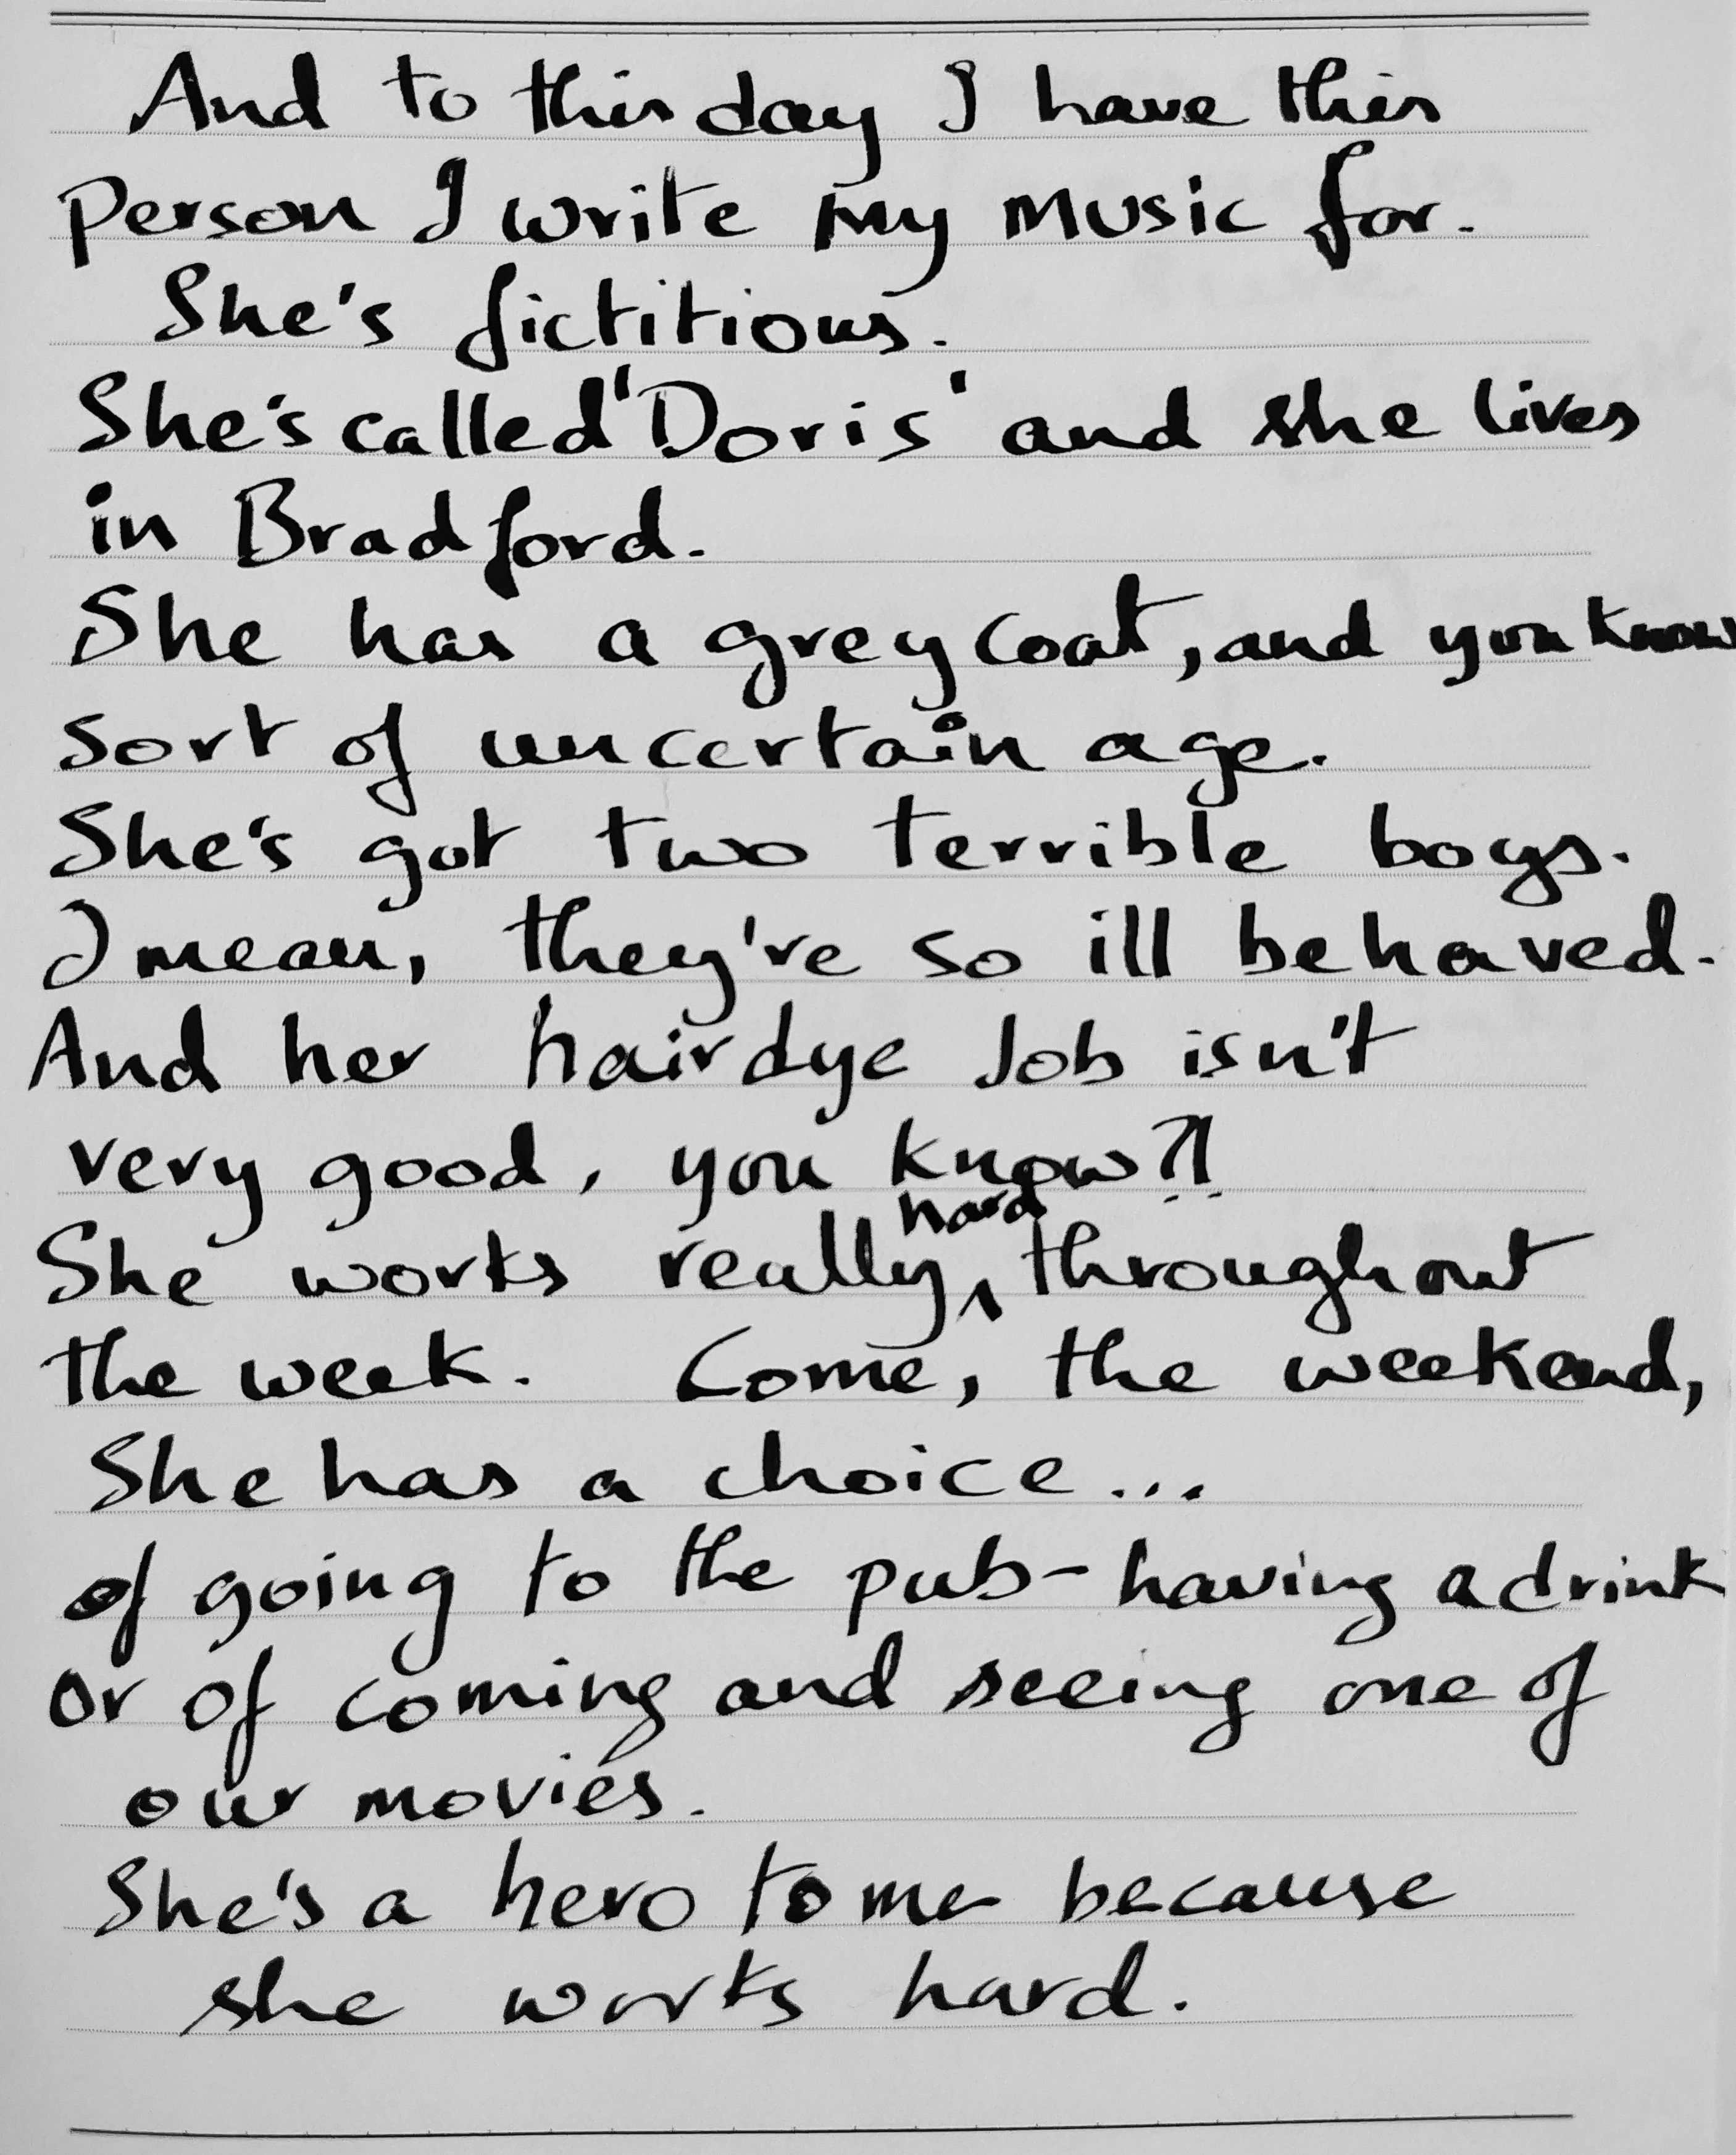 And to this day I have this
Person I write my music for.
She's fictitious.
She's called 'Doris' and she lives
in Bradford.
She has a grey coat, and you know
sort of uncertain age.
She's got two terrible boys.
I mean, they're so ill behaved.
And her hairdye Job isn't
very good, you know?!
She works really, hard throughout
the week. Come, the weekend,
She has a choice...
of going to the pub- having a drink
or of coming and seeing one of
our movies.
She's a hero to me because
she works hard.